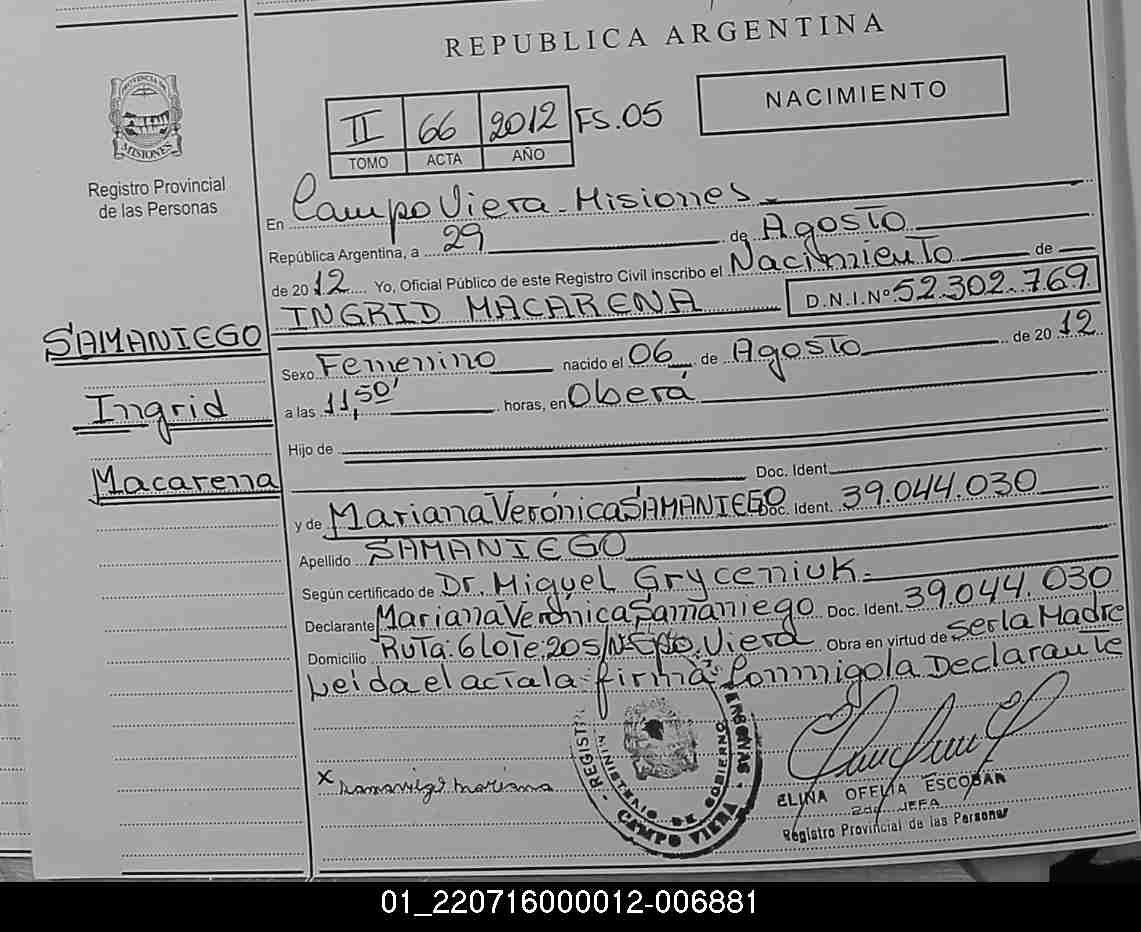 REPUBLICA ARGENTINA
NACIMIENTO
II 66 2012 FS.05
TOMO ACTA AÑO
PROVINCIA DE
MISIONES
Registro Provincial
de las Personas
SAMANIEGO
Ingrid
Macarena
En Campo Viera - Misiones
República Argentina, a 29 de Agosto
de 2012 Yo, Oficial Público de este Registro Civil inscribo el Nacimiento de
INGRID MACARENA D.N.I.Nº 52.302.769
Sexo Femenino nacido el 06 de Agosto de 2012
a las 11,50' horas, en Oberá
Hijo de
Doc. Ident.
y de Mariana Verónica SAMANIEGO Doc. Ident. 39.044.030
Apellido SAMANIEGO
Según certificado de Dr. Miguel Gryceniuk.-
Declarante Mariana Verónica Samaniego Doc. Ident. 39.044.030
Domicilio Ruta: 6 Lote: 205/N-Cpo. Viera Obra en virtud de ser la Madre
Leida el acta la firma conmigo la Declarante
x Samaniego Mariana
REGISTR PERSONAS
MINISTERIO DE GOBIERNO
- CAMPO VIERA -
ELINA OFELIA ESCOBAR
2da JEFA
Registro Provincial de las Personas
01_220716000012-006881